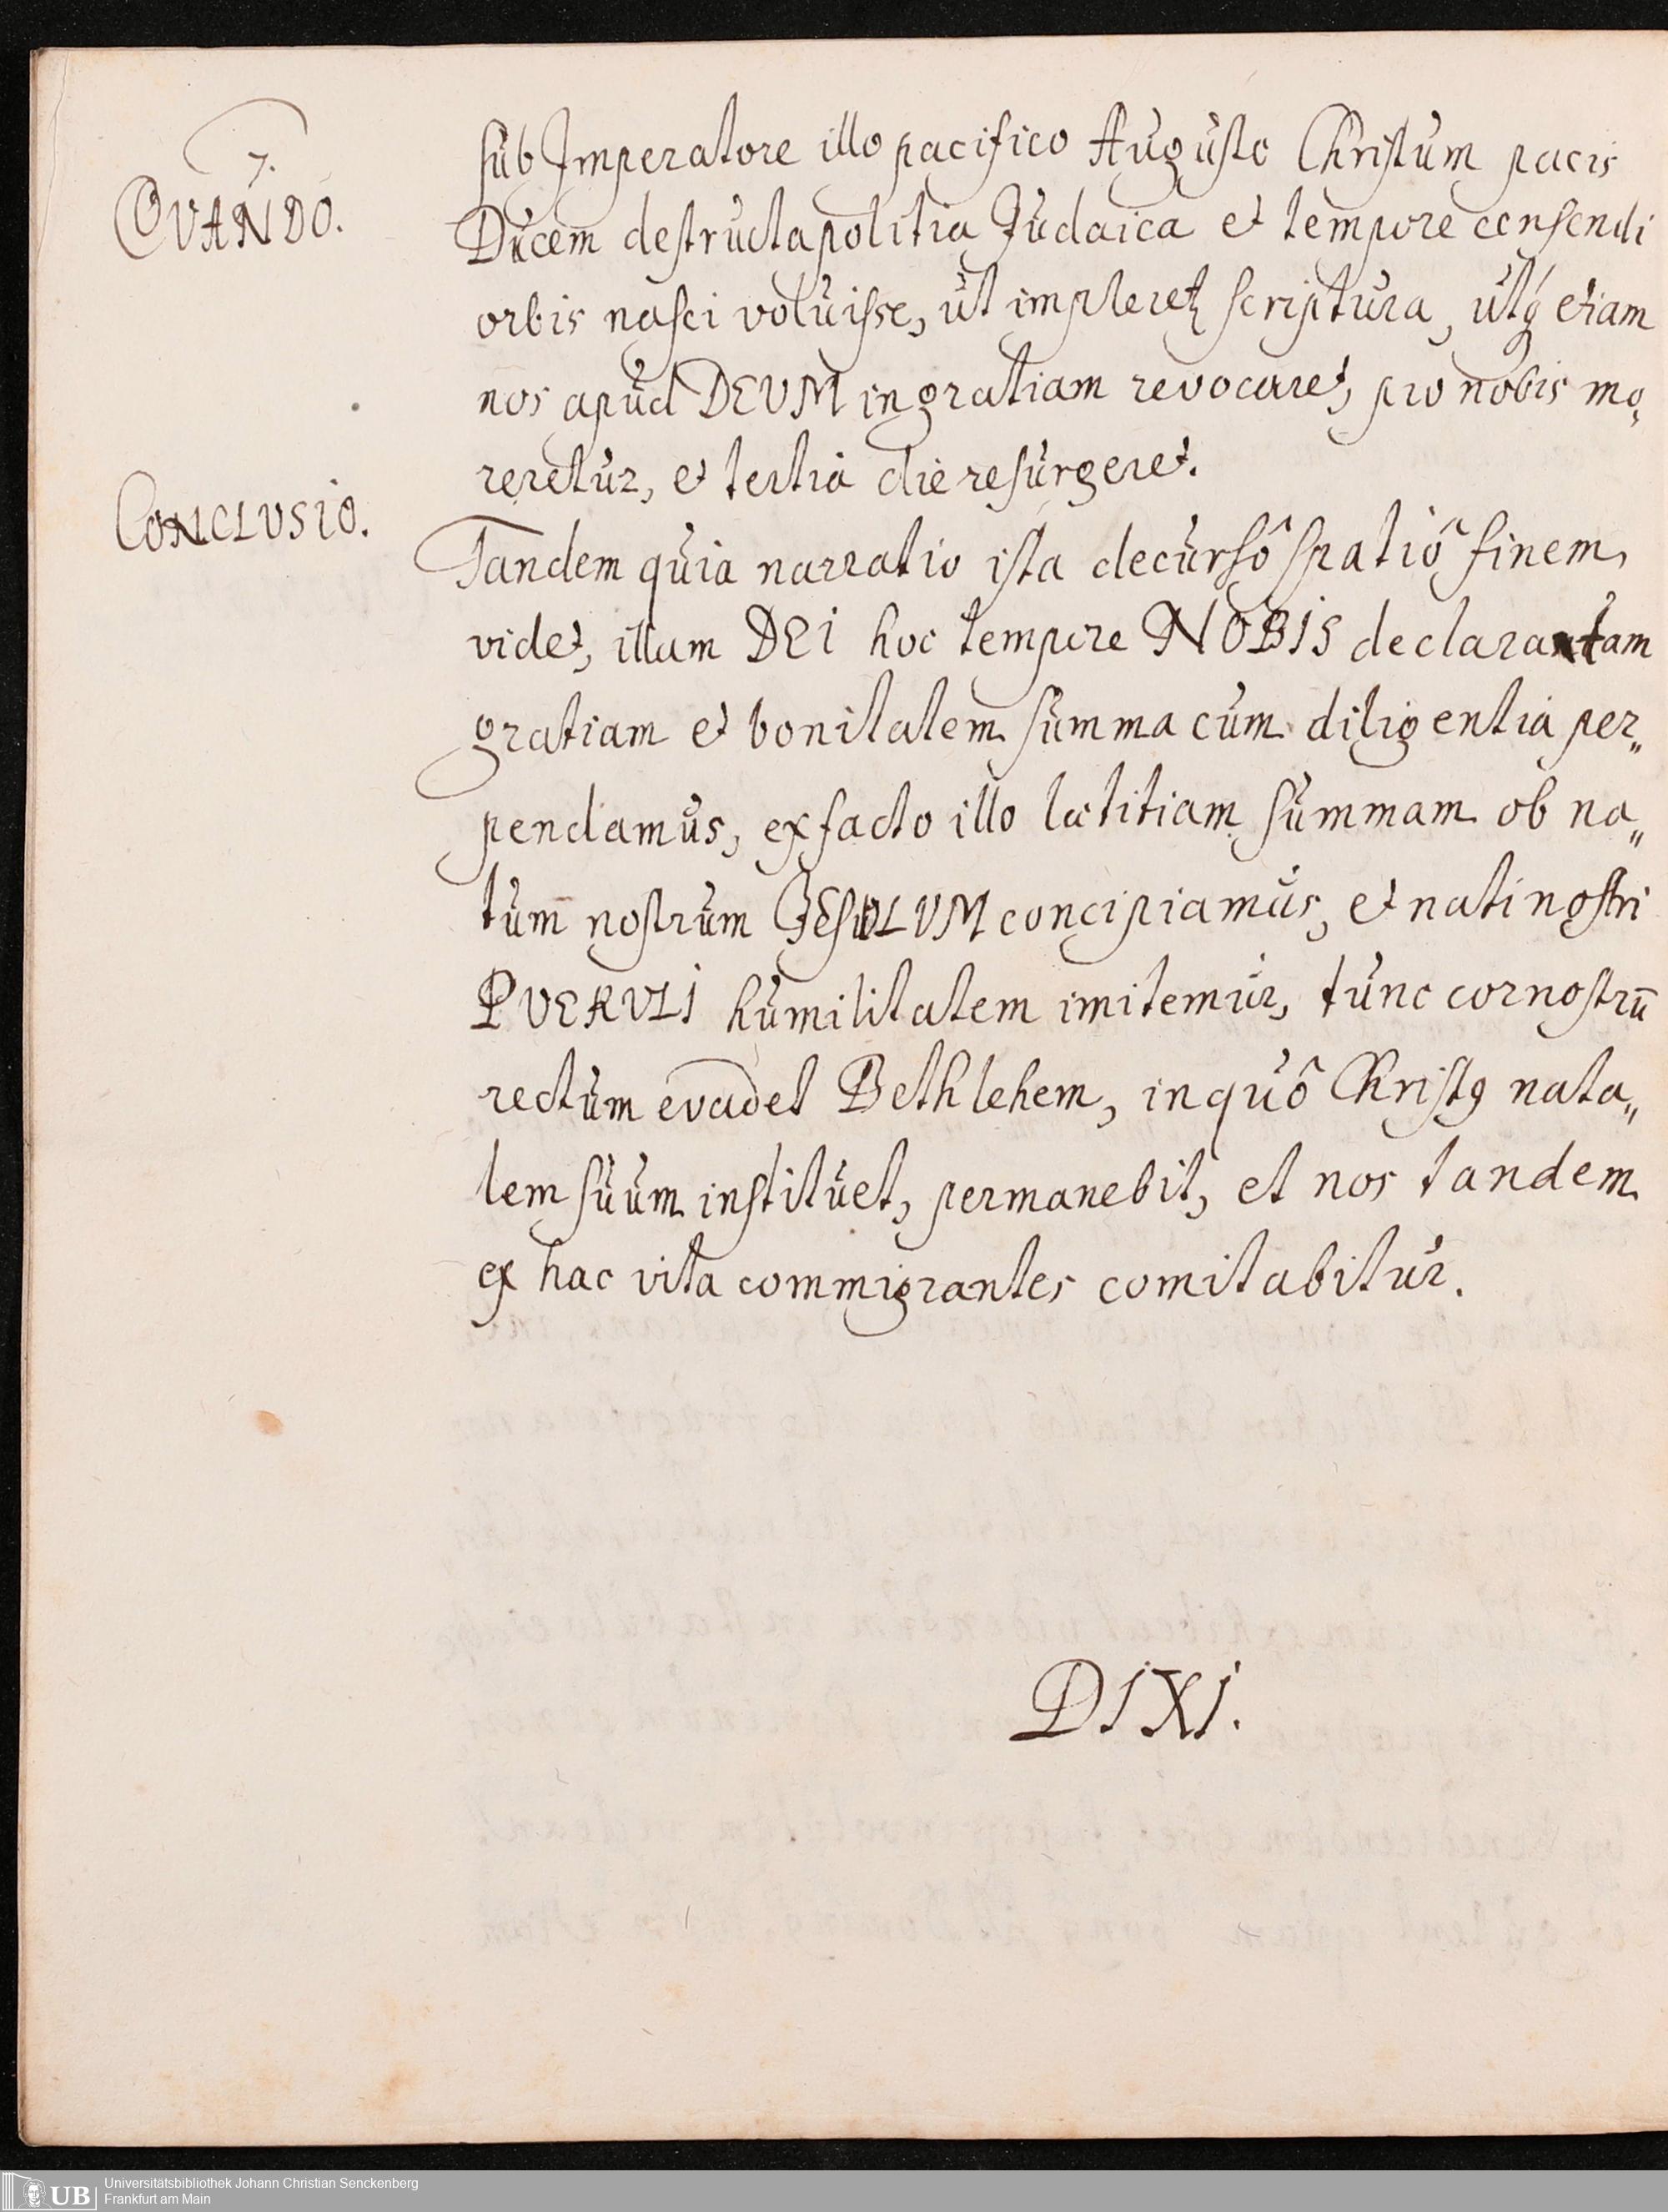 7.
QVANDO.
sub Imperatore illo pacifico Augusto Christum pacis
Ducem destructa politia Judaica et tempore censendi
orbis nasci voluisse, ut impleretꝛ scriptura, utqꝫ etiam
nos apud DEUM in gratiam revocaret, pro nobis mo,
reretur, et tertia die resurgeret.
CONCLVSIO.
Tandem quia narratio ista decursô spatiô finem,
videt, illam DEI hoc tempore NOBIS declaratam
gratiam et bonitatem summa cum diligentia per„
pendamus, ex facto illo lætitiam summam ob na„
tum nostrum JESULUM concipiamus, et nati nostri
PUERULI humilitatem imitemur, tunc cor nostrū
rectum evadet Bethlehem, in quô Christꝰ nata„
lem suum instituet, permanebit, et nos tandem
ex hac vita commigrantes comitabitur.
DIXI.
UB
Universitätsbibliothek Johann Christian Senckenberg
Frankfurt am Main